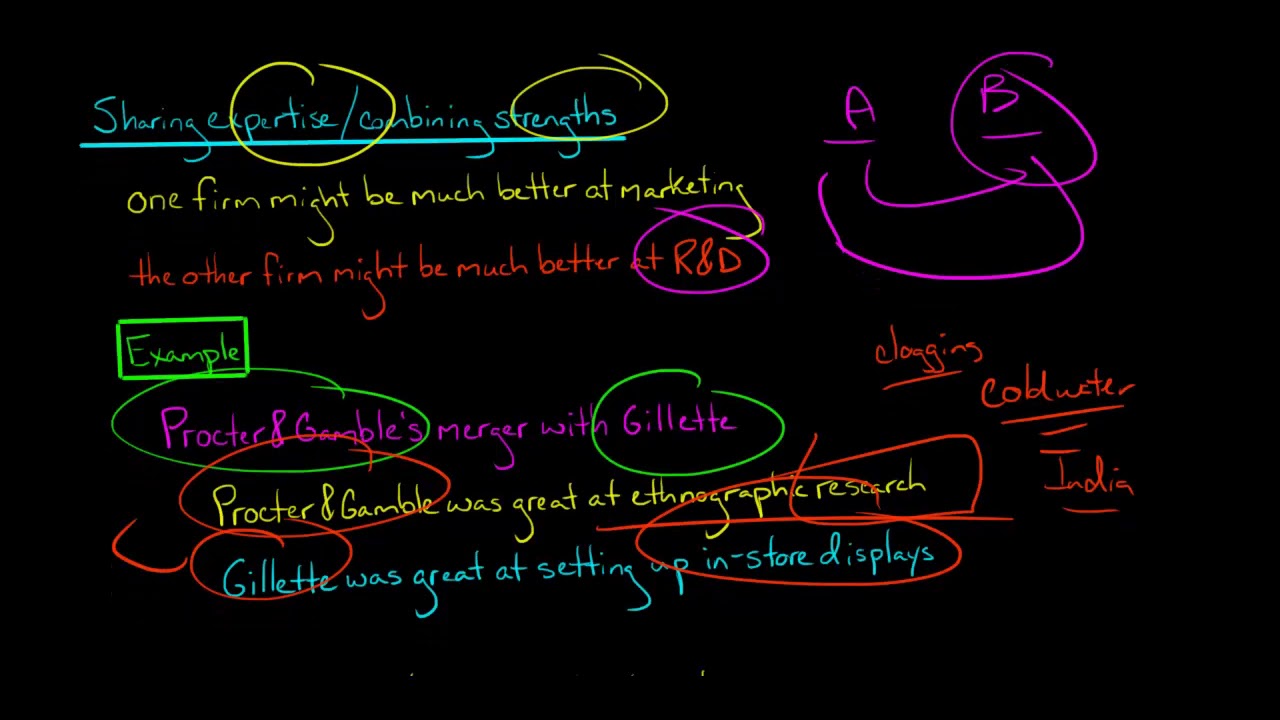 Sharing expertise/combining strengths
one firm might be much better at marketing
the other firm might be much better at R&D
A
B
Example
Procter & Gamble's merger with Gillette
Procter & Gamble was great at ethnographic research
Gillette was great at setting up in-store displays
clogging
cold water
India